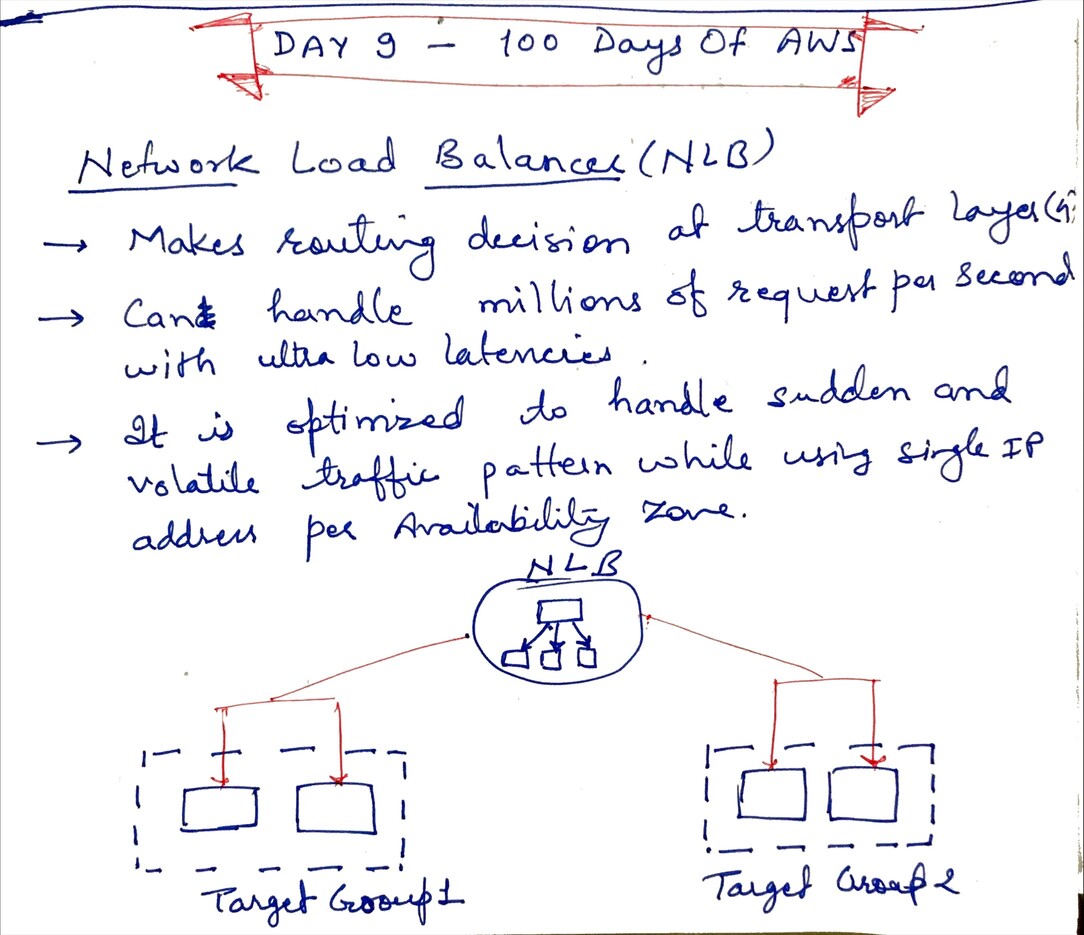 DAY 9 - 100 Days Of AWS
Network Load Balancer (NLB)
→ Makes routing decision at transport layer (4)
→ Can handle millions of request per second
with ultra low latencies.
→ It is optimized to handle sudden and
volatile traffic pattern while using single IP
address per Availability zone.
NLB
Target Group1
Target Group2